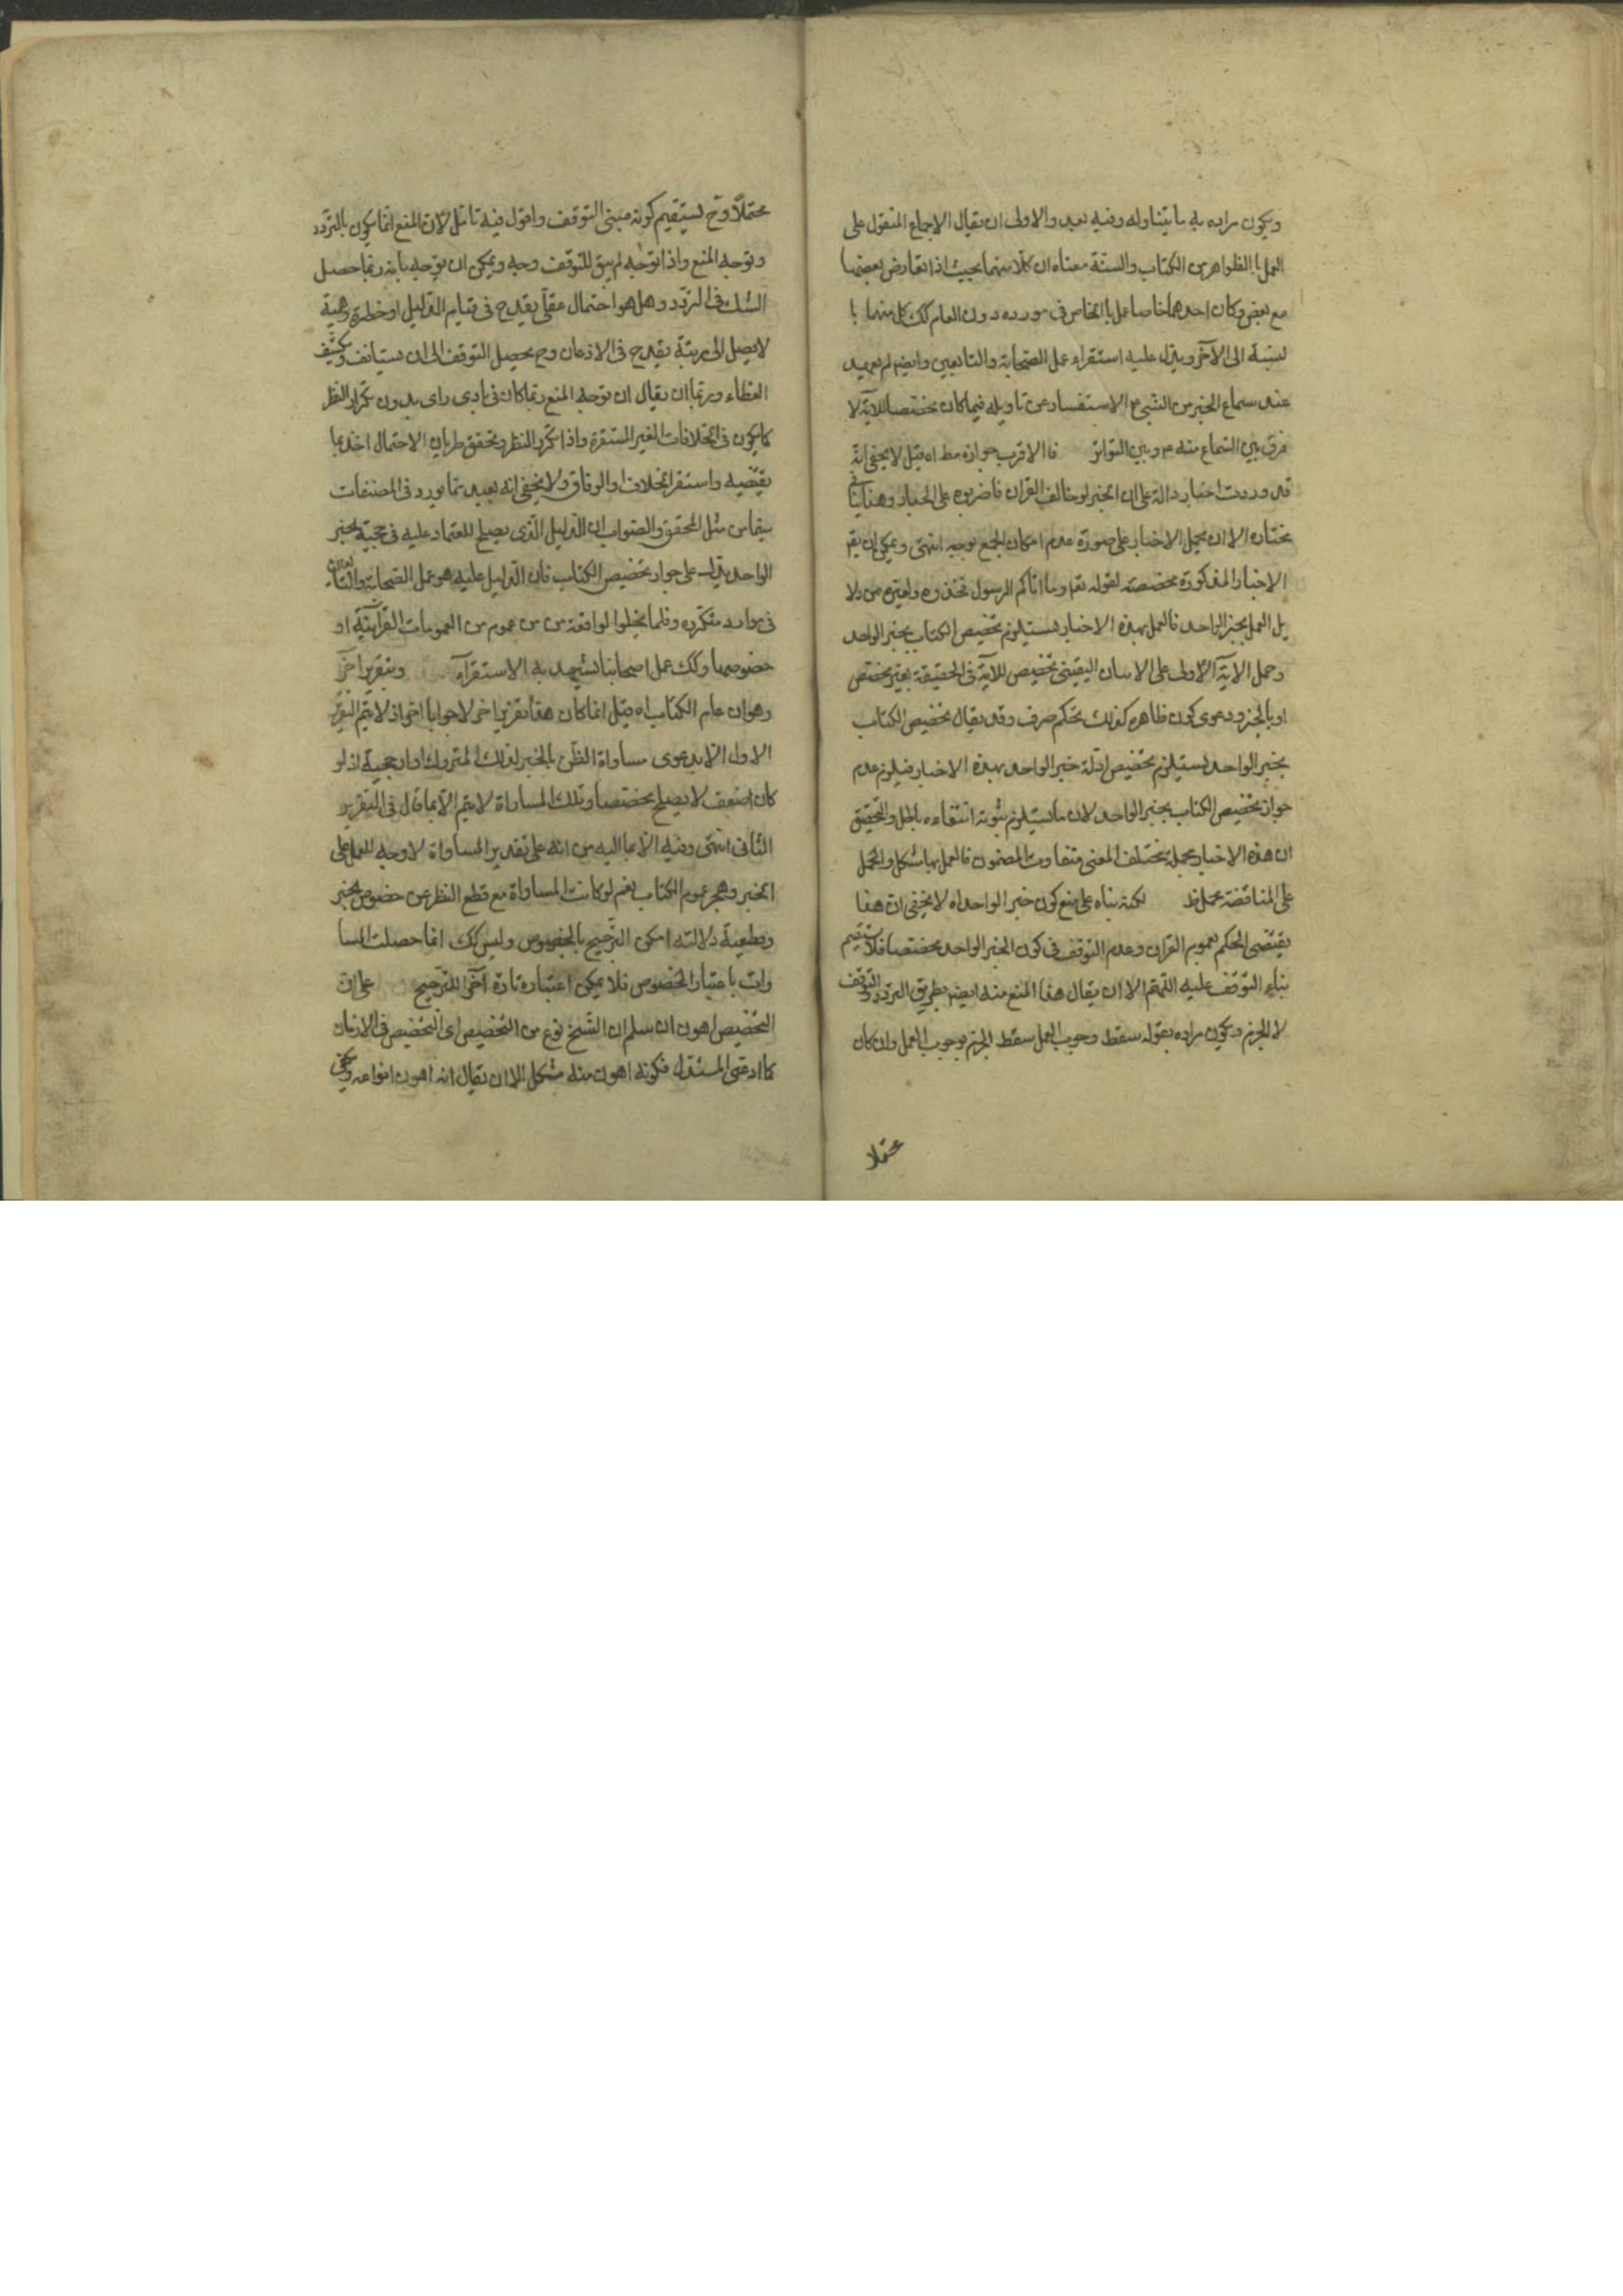 ويكون مراده به ما يتناوله وفيه بعد والاولى ان يقال الاجماع المنقول على
العمل بالظواهر من الكتاب والسنة معناه ان كلا منهما بحيث اذا تعارض بعضها
مع بعض وكان احدهما خاصا عمل بالخاص في مورده دون العام كك كل منهما با
لنسبة الى الآخر ويدل عليه استقراء عمل الصحابة والتابعين وايضا لم يعهد
عند سماع الخبر من النبي ع الاستفسار عن تاويله فيما كان مخصصا للآية لا
فرق بين السماع منه ع وبين التواتر فالاقرب جوازه مط اه قيل لا يخفى انه
قد وردت اخبار دالة على ان الخبر لو خالف القران فاضربوه على الجدار وهنا
يختاره الا ان يحمل الاخبار على صورة عدم امكان الجمع بوجه انتهى ويمكن ان يقر
الاخبار المذكورة مخصصة لقوله تعا وما اتاكم الرسول فخذوه ولغيره من دلا
يل العمل بخبر الواحد فالعمل بهذه الاخبار يستلزم تخصيص الكتاب بخبر الواحد
وحمل الآية الاولى على الاتيان اليقيني تخصيص للآية في الحقيقة بغير مخصص
او بالخبر ودعوى كون ظاهره كذلك تحكم صرف وقد يقال تخصيص الكتاب
بخبر الواحد يستلزم تخصيص ادلة خبر الواحد بهذه الاخبار فيلزم عدم
جواز تخصيص الكتاب بخبر الواحد لان ما يستلزم ثبوته انتفاءه باطل والتحقيق
ان هذه الاخبار مجملة مختلف المعنى متفاوت المضمون فالعمل بها مشكل والحمل
على المناقضة محمل ظ لكنه بناه على منع كون خبر الواحد اه لا يخفى ان هذا
يقتضي الحكم بعموم القران وعدم التوقف في كون الخبر الواحد مخصصا فلا يستقيم
بناء التوقف عليه اللهم الا ان يقال هذا المنع منه ايضا بطريق التردد والتوقف
لا الجزم ويكون مراده بقوله سقط وجوب العمل سقط الجزم بوجوب العمل وان كان
محتملا
محتملا وح يستقيم كونه مبنى التوقف واقول فيه تامل لان المنع انما يكون بالتردد
وتوجه المنع واذا توجه لم يبق للتوقف وجه ويمكن ان يوجه بانه ربما حصل
الشك في التردد وهل هو احتمال عقلي يقدح في قيام الدليل او خطرة وهمية
لا يصل الى مرتبة يقدح في الاذعان وح يحصل التوقف الى ان يستانف وكشف
الغطاء وربما ان يقال ان توجه المنع ربما كان في بادي راى بدون تكرار النظر
كما يكون في الخلافات الغير المستقرة واذا تكرر النظر وتحقق طريان الاحتمال اخذ بما
يقتضيه واستقر الخلاف والوفاق ولا يخفى انه بعيد مما يورد في المصنفات
سيما من مثل المحقق والصواب ان الدليل الذي يصلح للاعتماد عليه في حجية خبر
الواحد يدل على جواز تخصيص الكتاب فان الدليل عليه هو عمل الصحابة والتابعين
في موارد متكثرة وقلما يخلوا لواقعة من من عموم من العمومات القرآنية او
خصوصها وكك عمل اصحابنا يشهد به الاستقراء وبتقرير آخر
وهو ان عام الكتاب اه قيل انما كان هذا تقريرا اخر لا جوابا اخر اذ لا يتم التقرير
الاول الا بدعوى مساواة الظن بالخبر لذلك المتروك اوارجحيته اذ لو
كان اضعف لا يصلح مخصصا وتلك المساواة لا يتم الا بما قال في التقرير
الثاني انتهى وفيه الايما اليه من انه على تقدير المساواة لا وجه للعمل على
الخبر وهجر عموم الكتاب نعم لو كانت المساواة مع قطع النظر عن خصوص الخبر
وقطعية دلالته امكن الترجيح بالخصوص وليس كك انما حصلت المسا
وات باعتبار الخصوص فلا يمكن اعتباره تارة آخرى للترجيح على ان
التخصيص اهون ان سلم ان النسخ نوع من التخصيص اى التخصيص في الازمان
كما ادعى المستدل فكونه اهون منه مشكل الا ان يقال انه اهون انواعه ويكفي